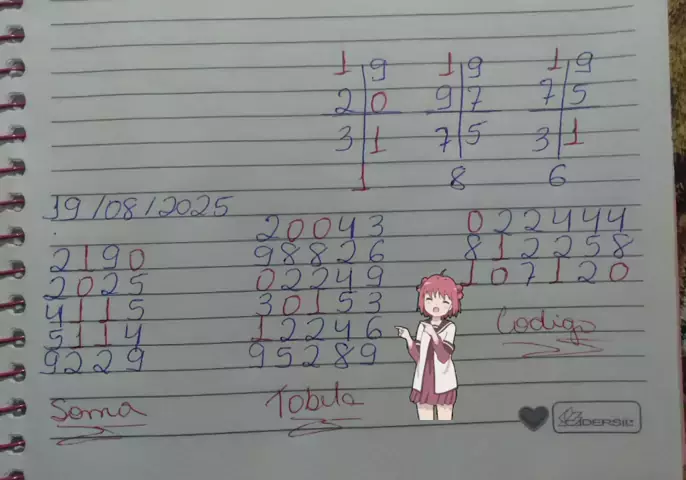 1|9 1|9 1|9
2|0 9|7 7|5
3|1 7|5 3|1
1 8 6
19/08/2025
20043
98826
02249
30153
12246
95289
Tabela
2190
2025
4115
5114
9229
Soma
022444
812258
107120
Codigo